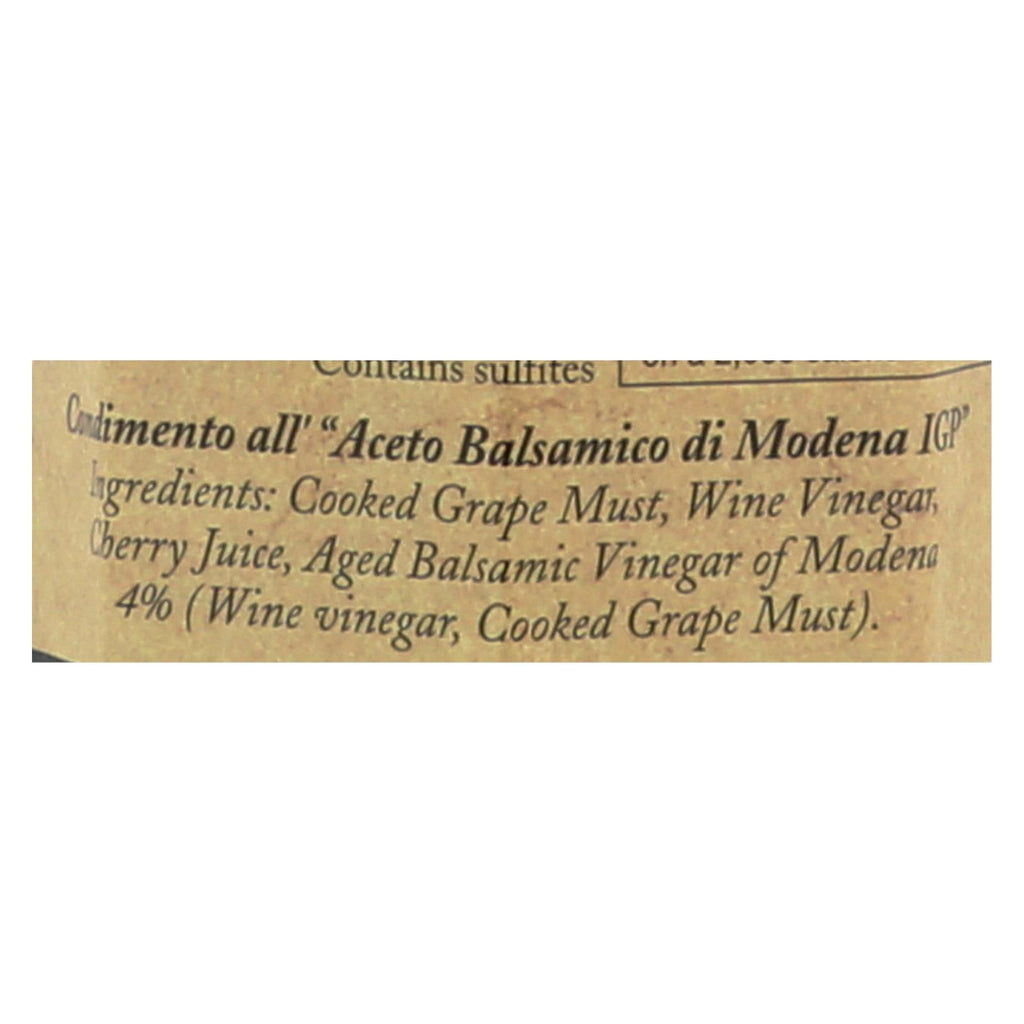 Contains sulfites
Condimento all' “Aceto Balsamico di Modena IGP”
Ingredients: Cooked Grape Must, Wine Vinegar,
Cherry Juice, Aged Balsamic Vinegar of Modena
4% (Wine vinegar, Cooked Grape Must).